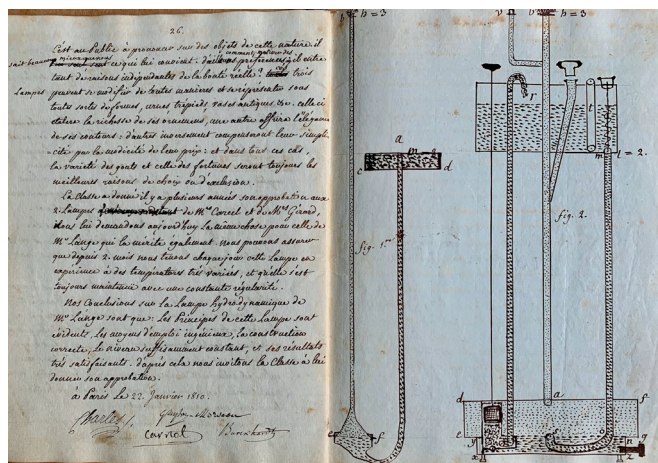 26.
C'est au Public à prononcer sur des objets de cette nature. il
sait beaucoup mieux que nous ce qui lui convient. comment motiver des
préférences, où il entre
tant de raisons indépendantes de la bonté réelle? ces trois
Lampes peuvent se modifier de toutes manières et se représenter sous
toutes sortes de formes, urnes, trépieds, vases antiques &c. celle ci
étalera la richesse de ses ornemens, une autre offrira l'élégance
de ses contours: d'autres inversement compenseront leur simpli-
cité par la médiocrité de leur prix: et dans tous ces cas,
la variété des gouts et celle des fortunes seront toujours les
meilleures raisons de choix ou d'exclusion.
La Classe a donné il y a plusieurs années son approbation aux
2. Lampes de Mr Carcel et de Mrs Girard,
nous lui demandons aujourd'huy la même chose pour celle de
Mr Lange qui la mérite également. nous pouvons assurer
que depuis 2. mois nous tenons chaque jour cette Lampe en
expérience à des températures très variées, et qu'elle s'est
toujours maintenue avec une constante régularité.
Nos Conclusions sur la Lampe hydrodynamique de
Mr Lange sont que: Les Principes de cette Lampe sont
évidents, les moyens d'emploi ingénieux, la construction
correcte, le niveau suffisamment constant, et ses résultats
très satisfaisants. d'après cela nous invitons la Classe à lui
donner son approbation.
à Paris le 22. Janvier 1810.
Charles, Guyton-Morveau
Carnot Burckhardt
b h = 3
v b h = 3
r t
a
m = 2
c d
m l = 2.
fig. 1re
fig. 2.
d a f
e f
e g
y n
x z